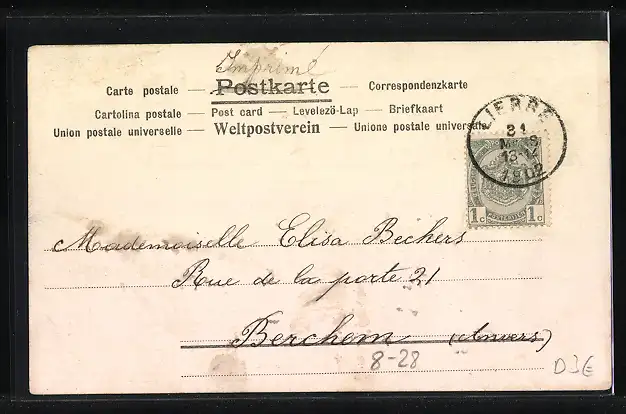 Imprimé
Carte postale — Postkarte — Correspondenzkarte
Cartolina postale — Post card — Levelező-Lap — Briefkaart
Union postale universelle — Weltpostverein — Unione postale universale
LIERRE
1902
1c 1c
Mademoiselle Elisa Bechers
Rue de la porte 21
Berchem (Anvers)
8-28